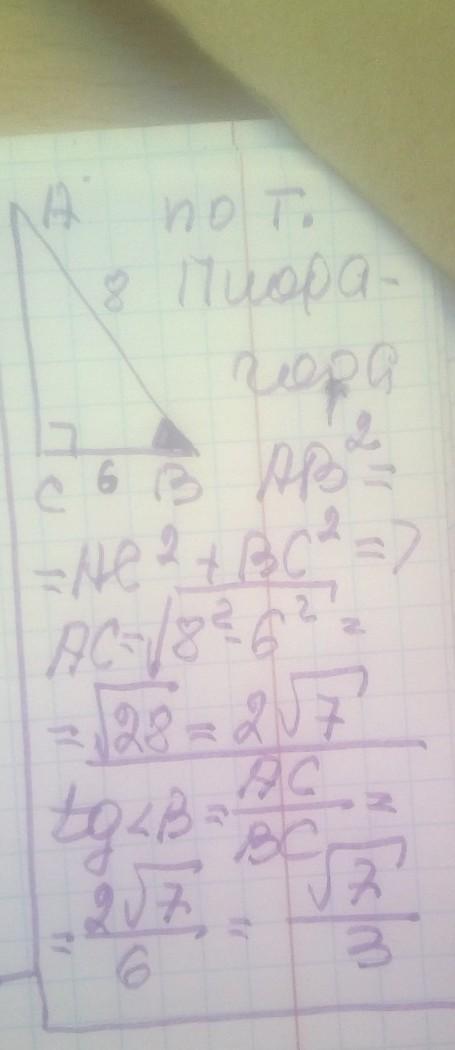 A по Т.
8 Пифа-
гора
C 6 B AB² =
= AC² + BC² =>
AC = √8² - 6² =
= √28 = 2√7
tg∠B = AC/BC =
= 2√7/6 = √7/3